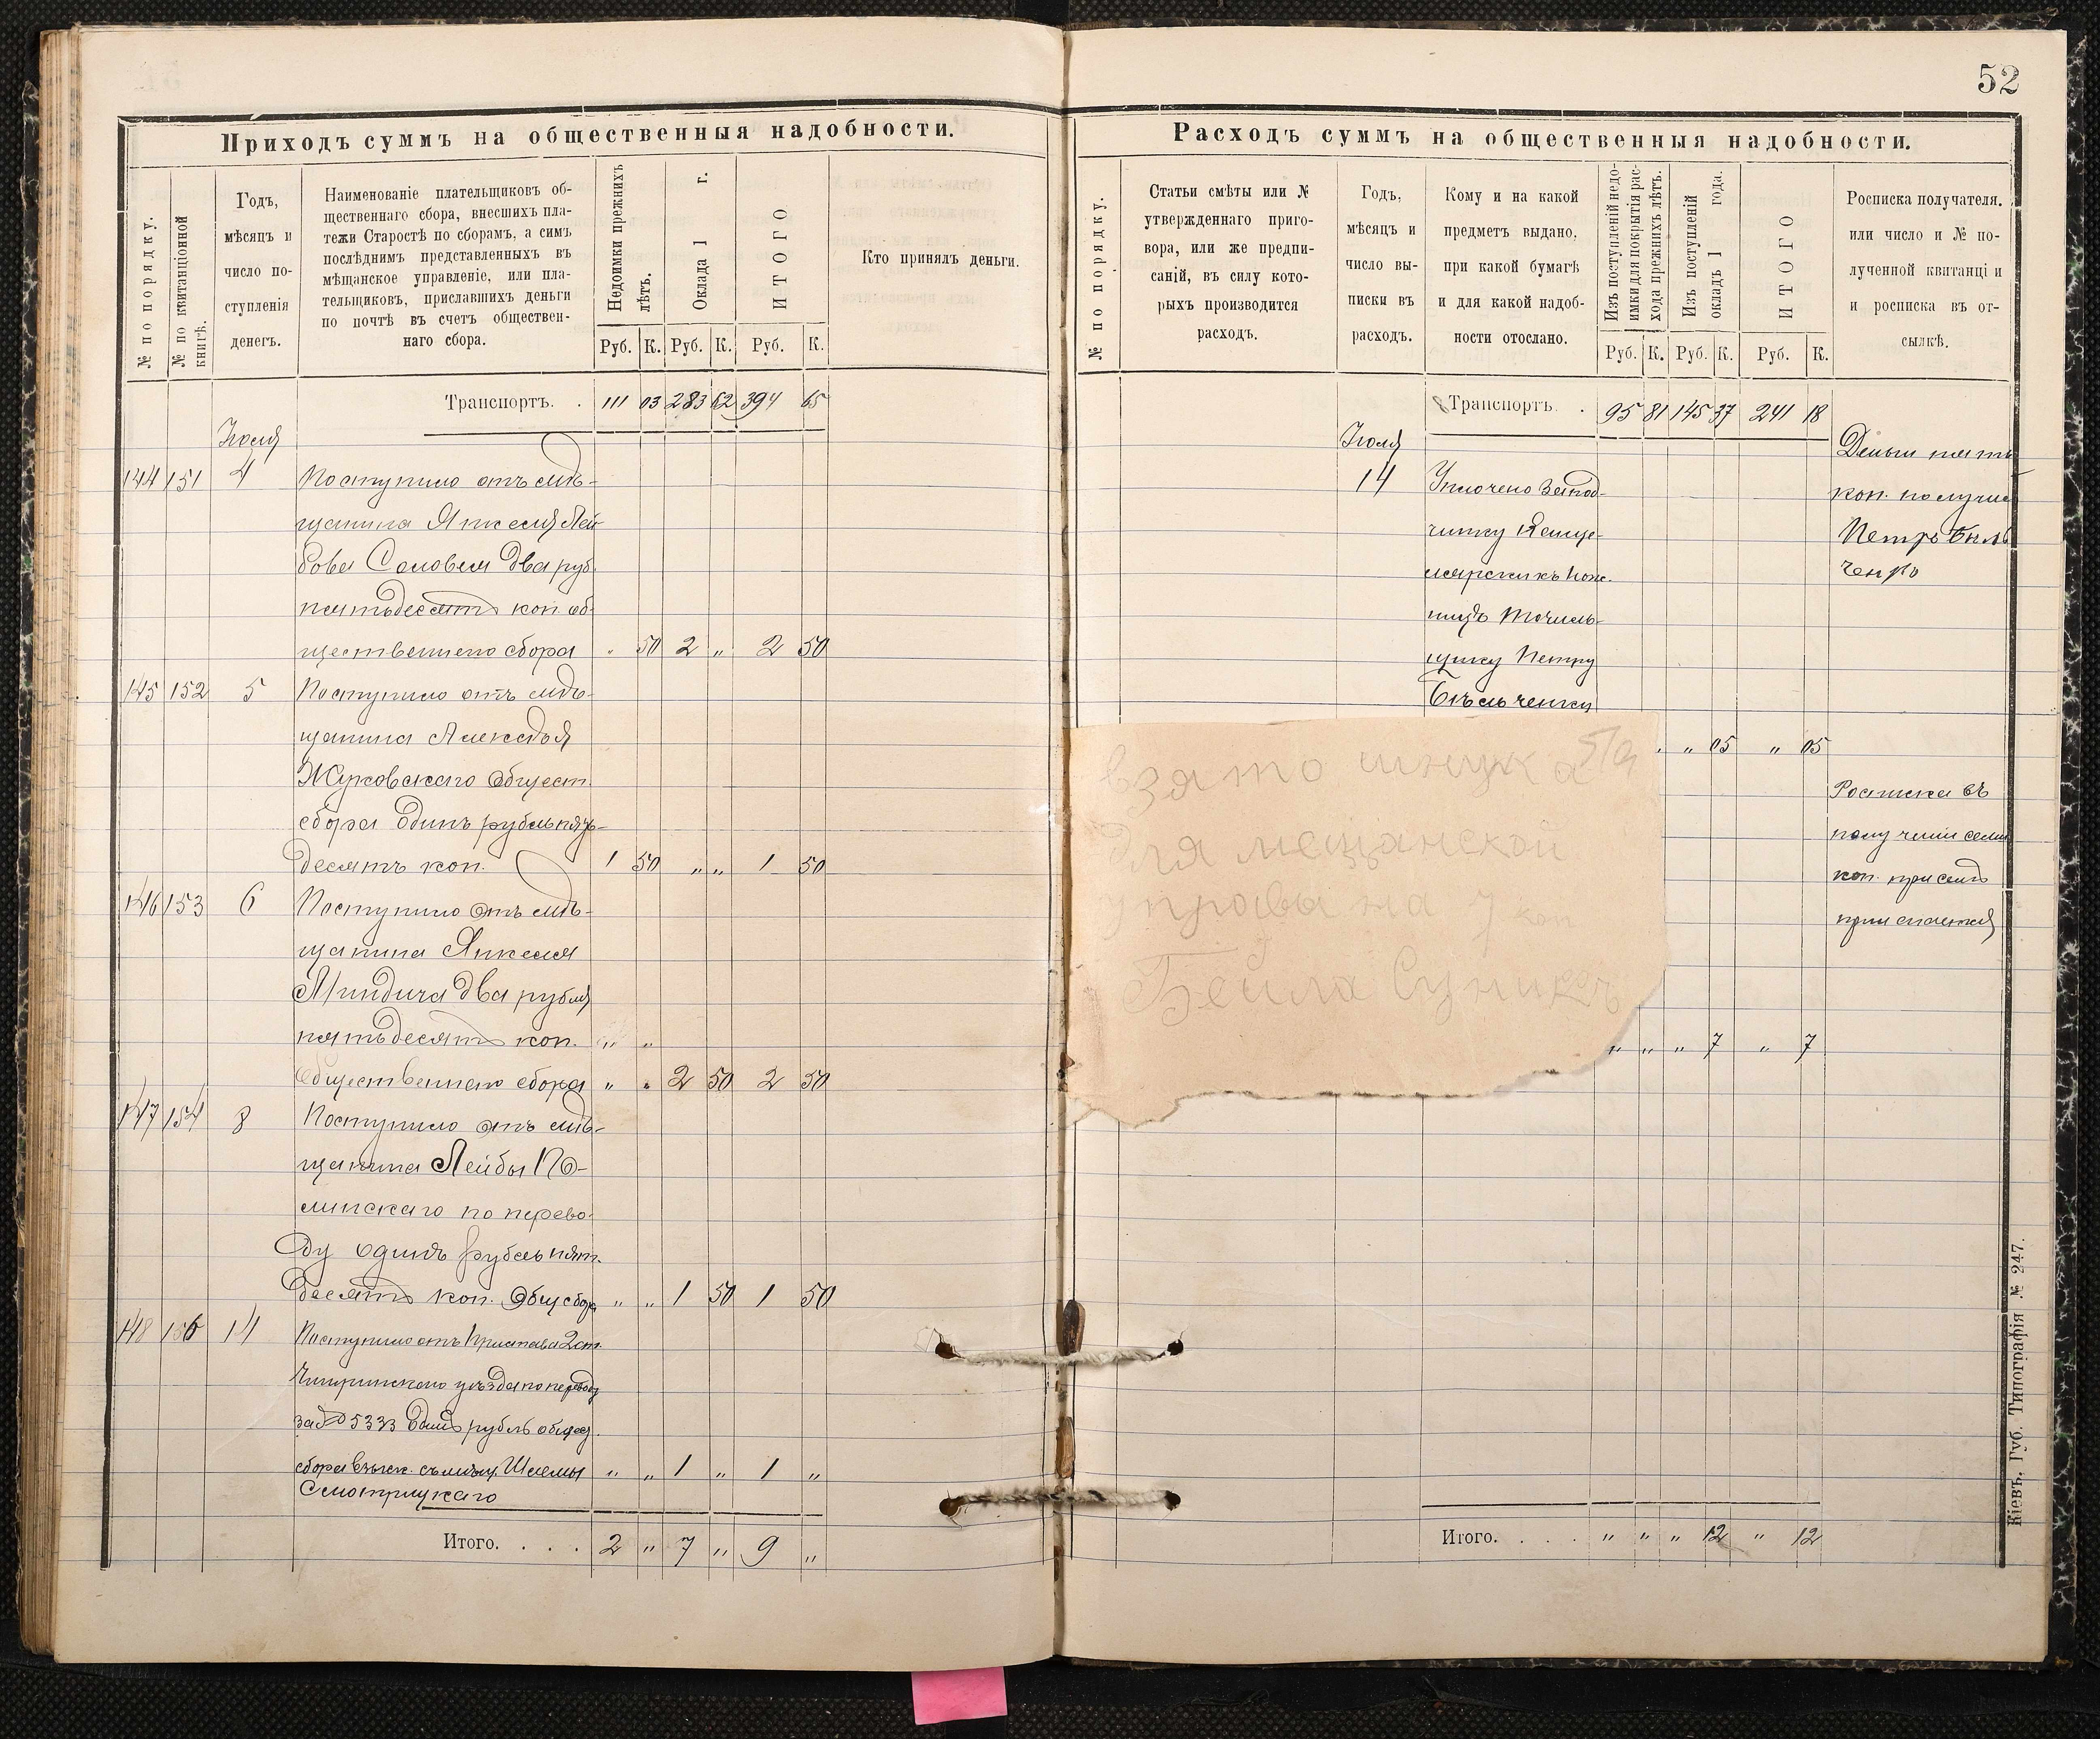 52
Приходъ суммъ на общественныя надобности.
№ по порядку.
№ по квитанціонной книгѣ.
Годъ,
мѣсяцъ и
число по-
ступленія
денегъ.
Наименованіе плательщиковъ об-
щественнаго сбора, внесшихъ пла-
тежи Старостѣ по сборамъ, а симъ
послѣднимъ представленныхъ въ
мѣщанское управленіе, или пла-
тельщиковъ, приславшихъ деньги
по почтѣ въ счетъ обществен-
наго сбора.
Недоимки прежнихъ лѣтъ.
Оклада 1 г.
ИТОГО
Кто принялъ деньги.
Руб. К. Руб. К. Руб. К.
Транспортъ. . 111 03 283 62 394 65
Іюля
144 151 4 Поступило отъ мѣ-
щанина Янкеля Лей-
бова Соловья два руб.
пятьдесятъ коп. об-
щественнаго сбора " 50 2 " 2 50
145 152 5 Поступило отъ мѣ-
щанина Алексѣя
Жуковскаго общест.
сбора одинъ рубль пять-
десятъ коп. 1 50 " " 1 50
146 153 6 Поступило отъ мѣ-
щанина Янкеля
Миндича два рубля
пятьдесятъ коп. " "
общественнаго сбора " " 2 50 2 50
147 154 8 Поступило отъ мѣ-
щанина Лейбы По-
линскаго по перево-
ду одинъ рубль пят-
десятъ коп. общ сбора " " 1 50 1 50
148 156 14 Поступило отъ Пристава 2 ст.
Чигиринскаго уѣзда по переводу
за № 5333 одинъ рубль общес.
сбора взыск. съ мѣщ. Шлемы " " 1 " 1 "
Смотрицкаго
Итого. . . . 2 " 7 " 9 "
Расходъ суммъ на общественныя надобности.
№ по порядку.
Статьи смѣты или №
утвержденнаго приго-
вора, или же предпи-
саній, въ силу кото-
рыхъ производится
расходъ.
Годъ,
мѣсяцъ и
число вы-
писки въ
расходъ.
Кому и на какой
предметъ выдано,
при какой бумагѣ
и для какой надоб-
ности отослано.
Изъ поступленій недо-
имки для покрытія рас-
хода прежнихъ лѣтъ.
Изъ поступленій
окладъ 1 года.
ИТОГО
Росписка получателя.
или число и № по-
лученной квитанціи
и росписка въ от-
сылкѣ.
Руб. К. Руб. К. Руб. К.
Транспортъ . 95 81 145 37 241 18
Іюля
14 Уплочено за под-
чинку Канце-
лярскихъ нож-
ницъ точиль-
щику Петру
Бѣльченку
" " 05 " 05
Деньги пять
коп. получил
Петръ Бѣль
ченко
Росписка въ
получении семи
коп. при семъ
прилагается
взято шнука
для мещанской
управы на 7 коп
Бейла
" " " 7 " 7
Итого. . . . " " " 12 " 12
Кіевъ, Губ. Типографія № 247.